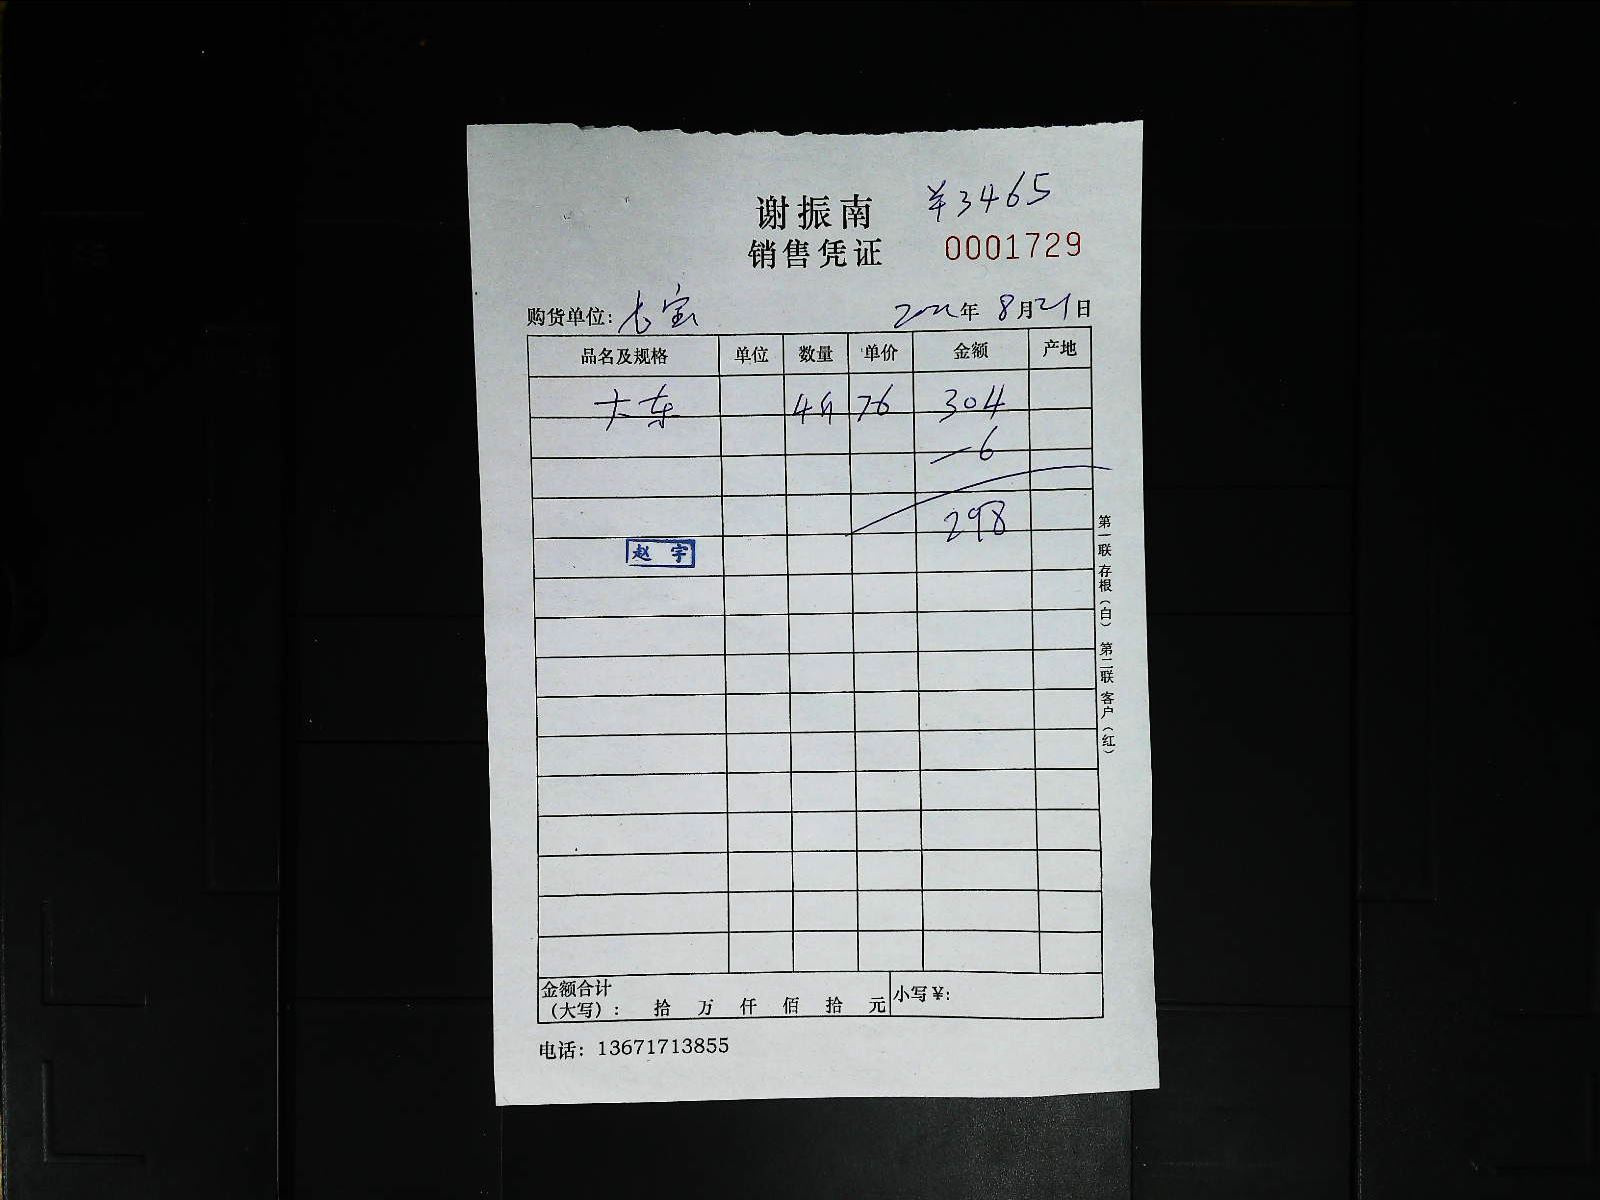 ¥3465
谢振南
销售凭证 0001729
购货单位: 长宝 2022年 8月21日
品名及规格 单位 数量 单价 金额 产地
大东 4斤 76 304
-6
298
赵宇
第一联 存根(白) 第二联 客户(红)
金额合计
(大写): 拾 万 仟 佰 拾 元 小写¥:
电话: 13671713855